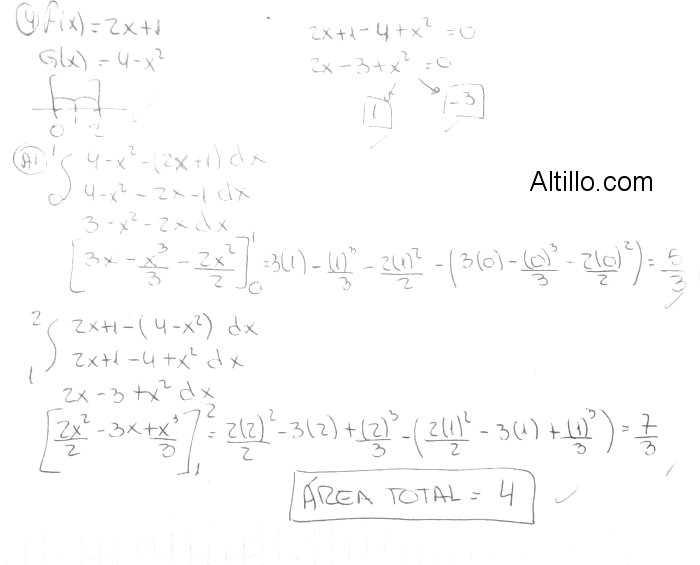 4) F(x) = 2x+1
G(x) = 4-x²
0 1 2
2x+1-4+x² = 0
2x-3+x² = 0
1 -3
A1 ∫₀¹ 4-x²-(2x+1) dx
4-x²-2x-1 dx
3-x²-2x dx
[3x - x³/3 - 2x²/2]₀¹ = 3(1) - (1)³/3 - 2(1)²/2 - (3(0) - (0)³/3 - 2(0)²/2) = 5/3
∫₁² 2x+1-(4-x²) dx
2x+1-4+x² dx
2x-3+x² dx
[2x²/2 - 3x + x³/3]₁² = 2(2)²/2 - 3(2) + (2)³/3 - (2(1)²/2 - 3(1) + (1)³/3) = 7/3
ÁREA TOTAL = 4
Altillo.com